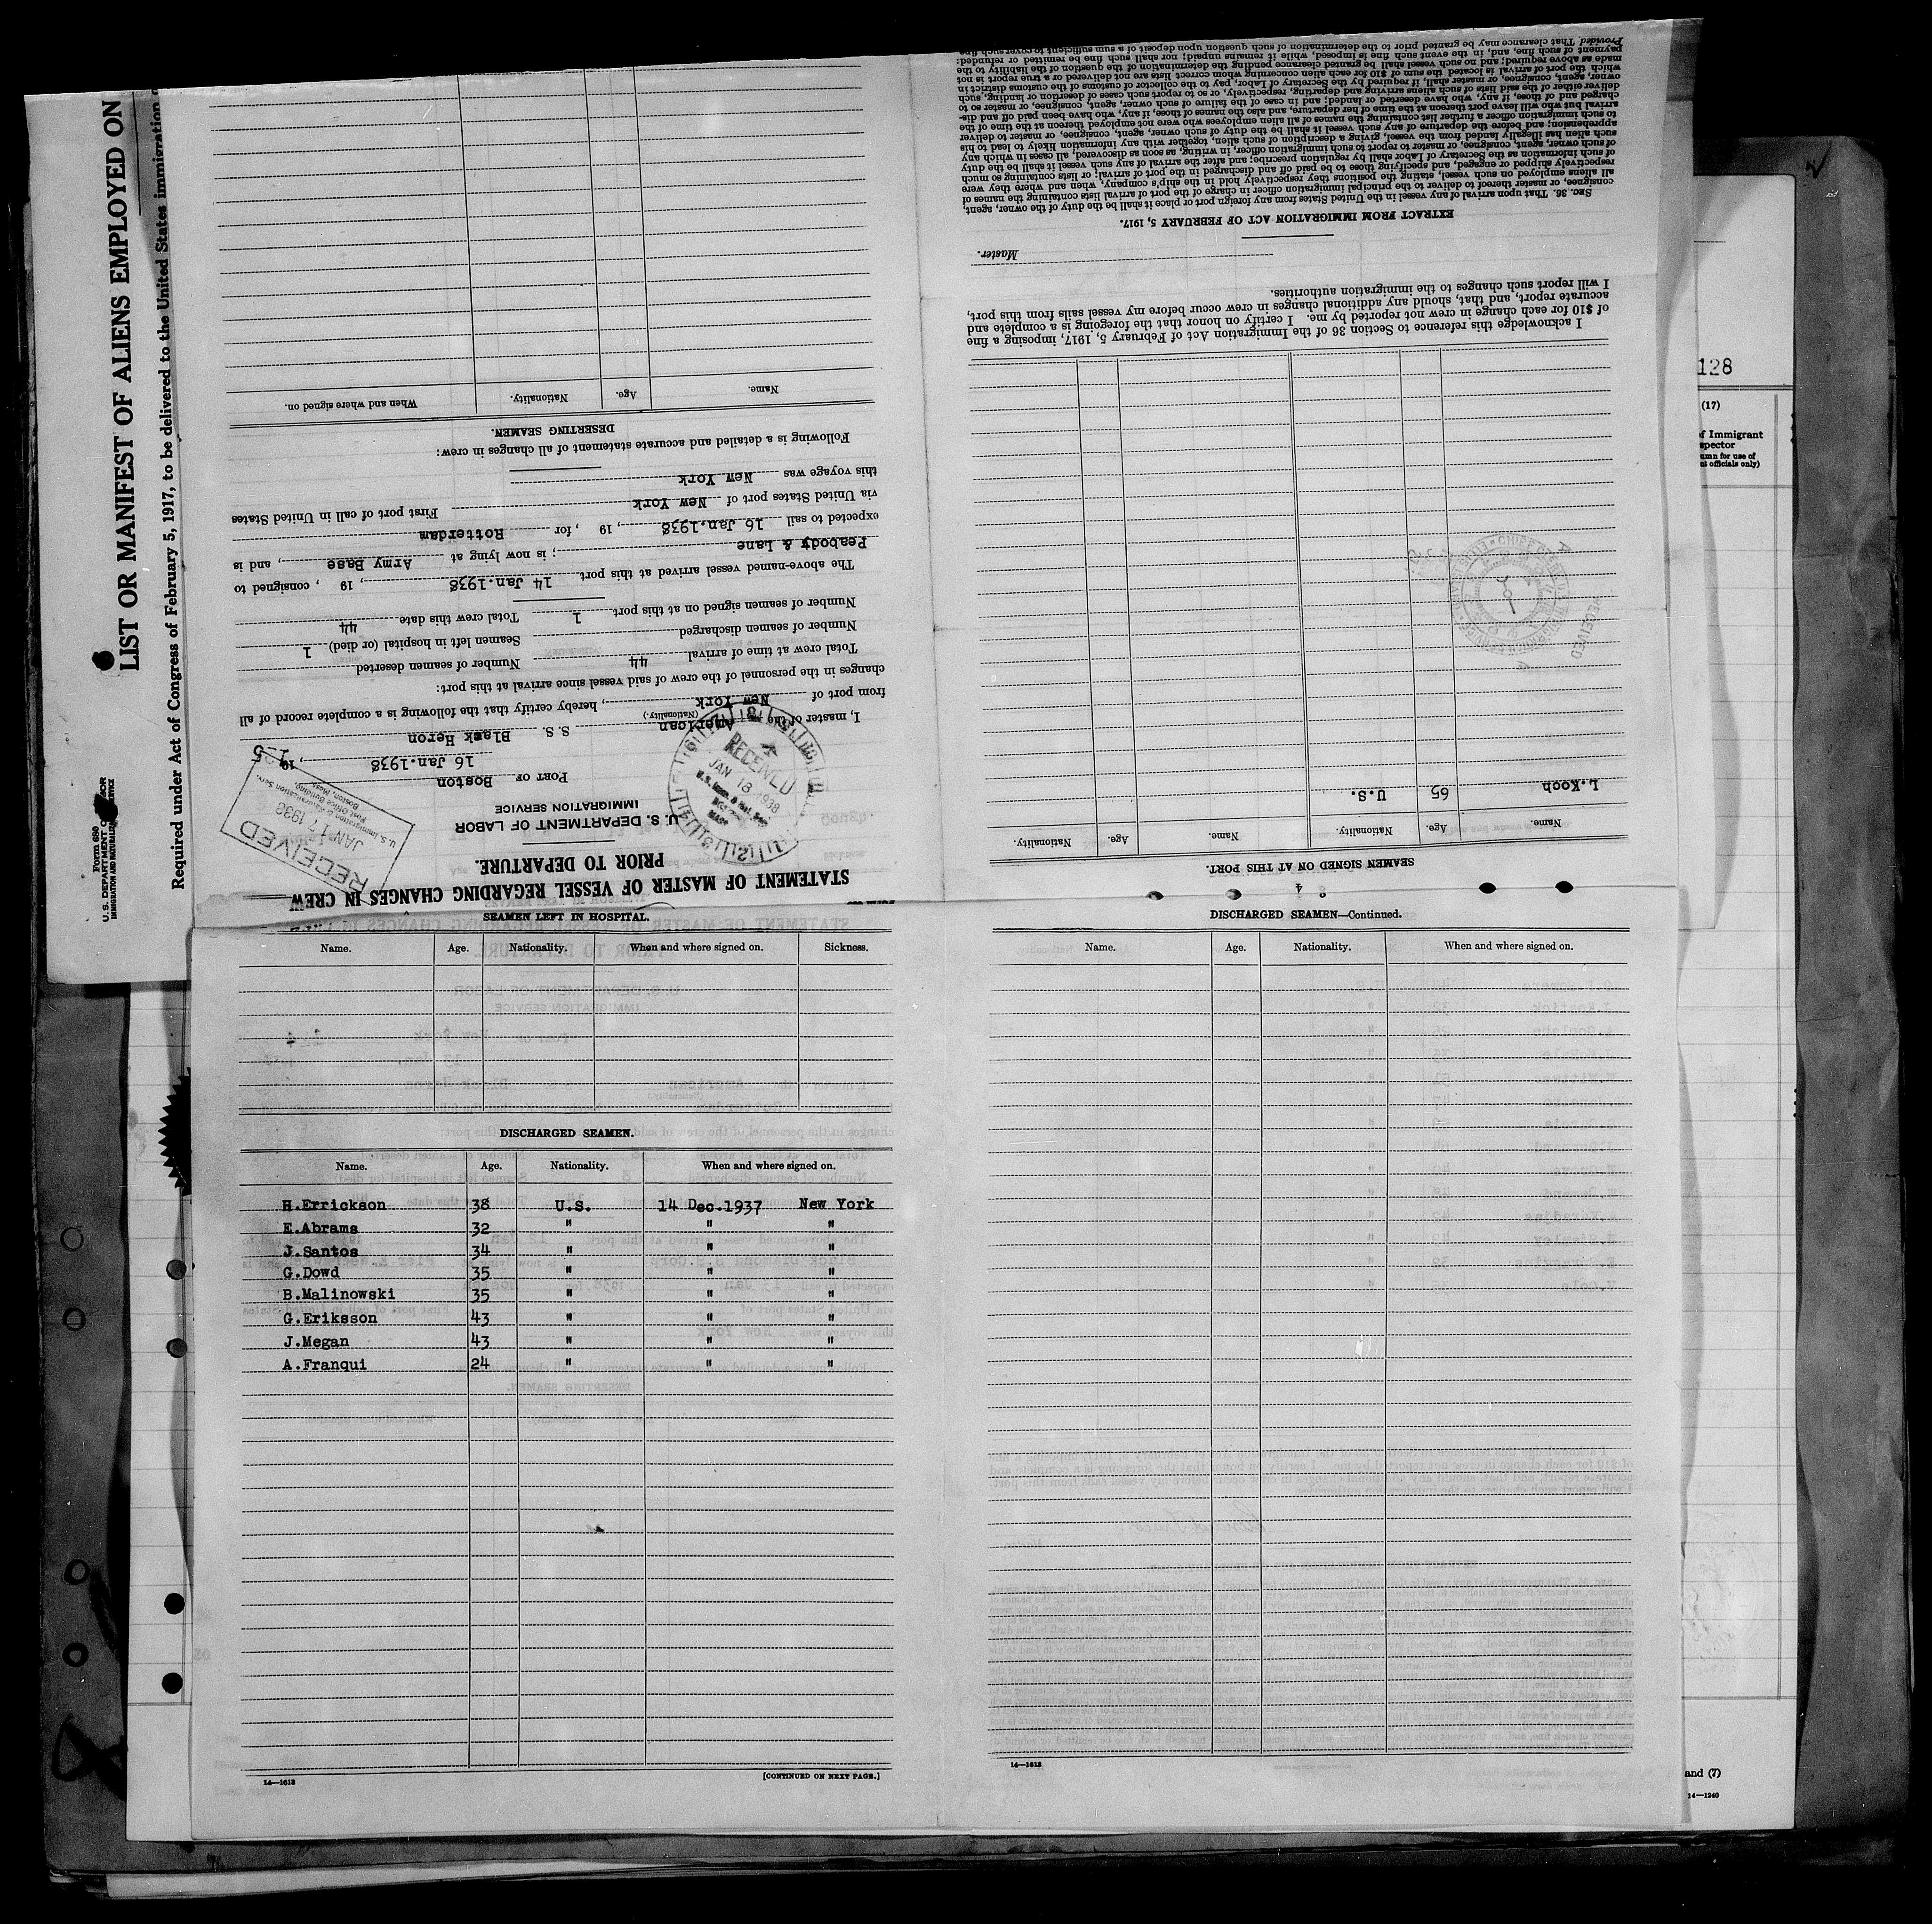 Form 680
U. S. DEPARTMENT OF LABOR
IMMIGRATION AND NATURALIZATION SERVICE
LIST OR MANIFEST OF ALIENS EMPLOYED ON
Required under Act of Congress of February 5, 1917, to be delivered to the United States immigration
STATEMENT OF MASTER OF VESSEL REGARDING CHANGES IN CREW
PRIOR TO DEPARTURE.
U. S. DEPARTMENT OF LABOR
IMMIGRATION SERVICE
RECEIVED
JAN 17 1938
U. S. Immigration & Naturalization Serv.
Post Office Building,
Boston, Mass.
RECEIVED
JAN 18 1938
PORT OF Boston
16 Jan.1938, 19
I, master of the American S. S. Black Heron
(Nationality.)
from port of New York, hereby certify that the following is a complete record of all
changes in the personnel of the crew of said vessel since arrival at this port:
Total crew at time of arrival 44 Number of seamen deserted
Number of seamen discharged Seamen left in hospital (or died) 1
Number of seamen signed on at this port 1 Total crew this date 44
The above-named vessel arrived at this port 14 Jan.1938, 19 , consigned to
Peabody & Lane; is now lying at Army Base, and is
expected to sail 16 Jan.1938, 19 , for Rotterdam
via United States port of New York First port of call in United States
this voyage was New York
Following is a detailed and accurate statement of all changes in crew:
DESERTING SEAMEN.
Name. Age. Nationality. When and where signed on.
SEAMEN SIGNED ON AT THIS PORT.
Name. Age. Nationality. Name. Age. Nationality.
L.Koch 65 U.S.
RECEIVED
I acknowledge this reference to Section 36 of the Immigration Act of February 5, 1917, imposing a fine
of $10 for each change in crew not reported by me. I certify on honor that the foregoing is a complete and
accurate report, and that, should any additional changes in crew occur before my vessel sails from this port,
I will report such changes to the immigration authorities.
Master.
EXTRACT FROM IMMIGRATION ACT OF FEBRUARY 5, 1917.
SEC. 36. That upon arrival of any vessel in the United States from any foreign port or place it shall be the duty of the owner, agent,
consignee, or master thereof to deliver to the principal immigration officer in charge of the port of arrival lists containing the names of
all aliens employed on such vessel, stating the positions they respectively hold in the ship's company, when and where they were
respectively shipped or engaged, and specifying those to be paid off and discharged in the port of arrival; or lists containing so much
of such information as the Secretary of Labor shall by regulation prescribe; and after the arrival of any such vessel it shall be the duty
of such owner, agent, consignee, or master to report to such immigration officer, in writing, as soon as discovered, all cases in which any
such alien has illegally landed from the vessel, giving a description of such alien, together with any information likely to lead to his
apprehension; and before the departure of any such vessel it shall be the duty of such owner, agent, consignee, or master to deliver
to such immigration officer a further list containing the names of all alien employees who were not employed thereon at the time of the
arrival but who will leave port thereon at the time of her departure, and also the names of those, if any, who have been paid off and dis-
charged and of those, if any, who have deserted or landed; and in case of the failure of such owner, agent, consignee, or master to
deliver either of the said lists of such aliens arriving and departing, respectively, or so to report such cases of desertion or landing, such
owner, agent, consignee, or master shall, if required by the Secretary of Labor, pay to the collector of customs of the customs district in
which the port of arrival is located the sum of $10 for each alien concerning whom correct lists are not delivered or a true report is not
made as above required; and no such vessel shall be granted clearance pending the determination of the question of the liability to the
payment of such fine, and, in the event such fine is imposed, while it remains unpaid; nor shall such fine be remitted or refunded:
Provided, That clearance may be granted prior to the determination of such question upon deposit of a sum sufficient to cover such fine
128
(17)
of Immigrant
spector
umn for use of
nt officials only)
SEAMEN LEFT IN HOSPITAL.
Name. Age. Nationality. When and where signed on. Sickness.
DISCHARGED SEAMEN.
Name. Age. Nationality. When and where signed on.
H.Errickson 38 U.S. 14 Dec.1937 New York
E.Abrams 32 " " "
J.Santos 34 " " "
G.Dowd 35 " " "
B.Malinowski 35 " " "
G.Eriksson 43 " " "
J.Megan 43 " " "
A.Franqui 24 " " "
14—1613
[CONTINUED ON NEXT PAGE.]
DISCHARGED SEAMEN—Continued.
Name. Age. Nationality. When and where signed on.
14—1613
and (7)
14—1240